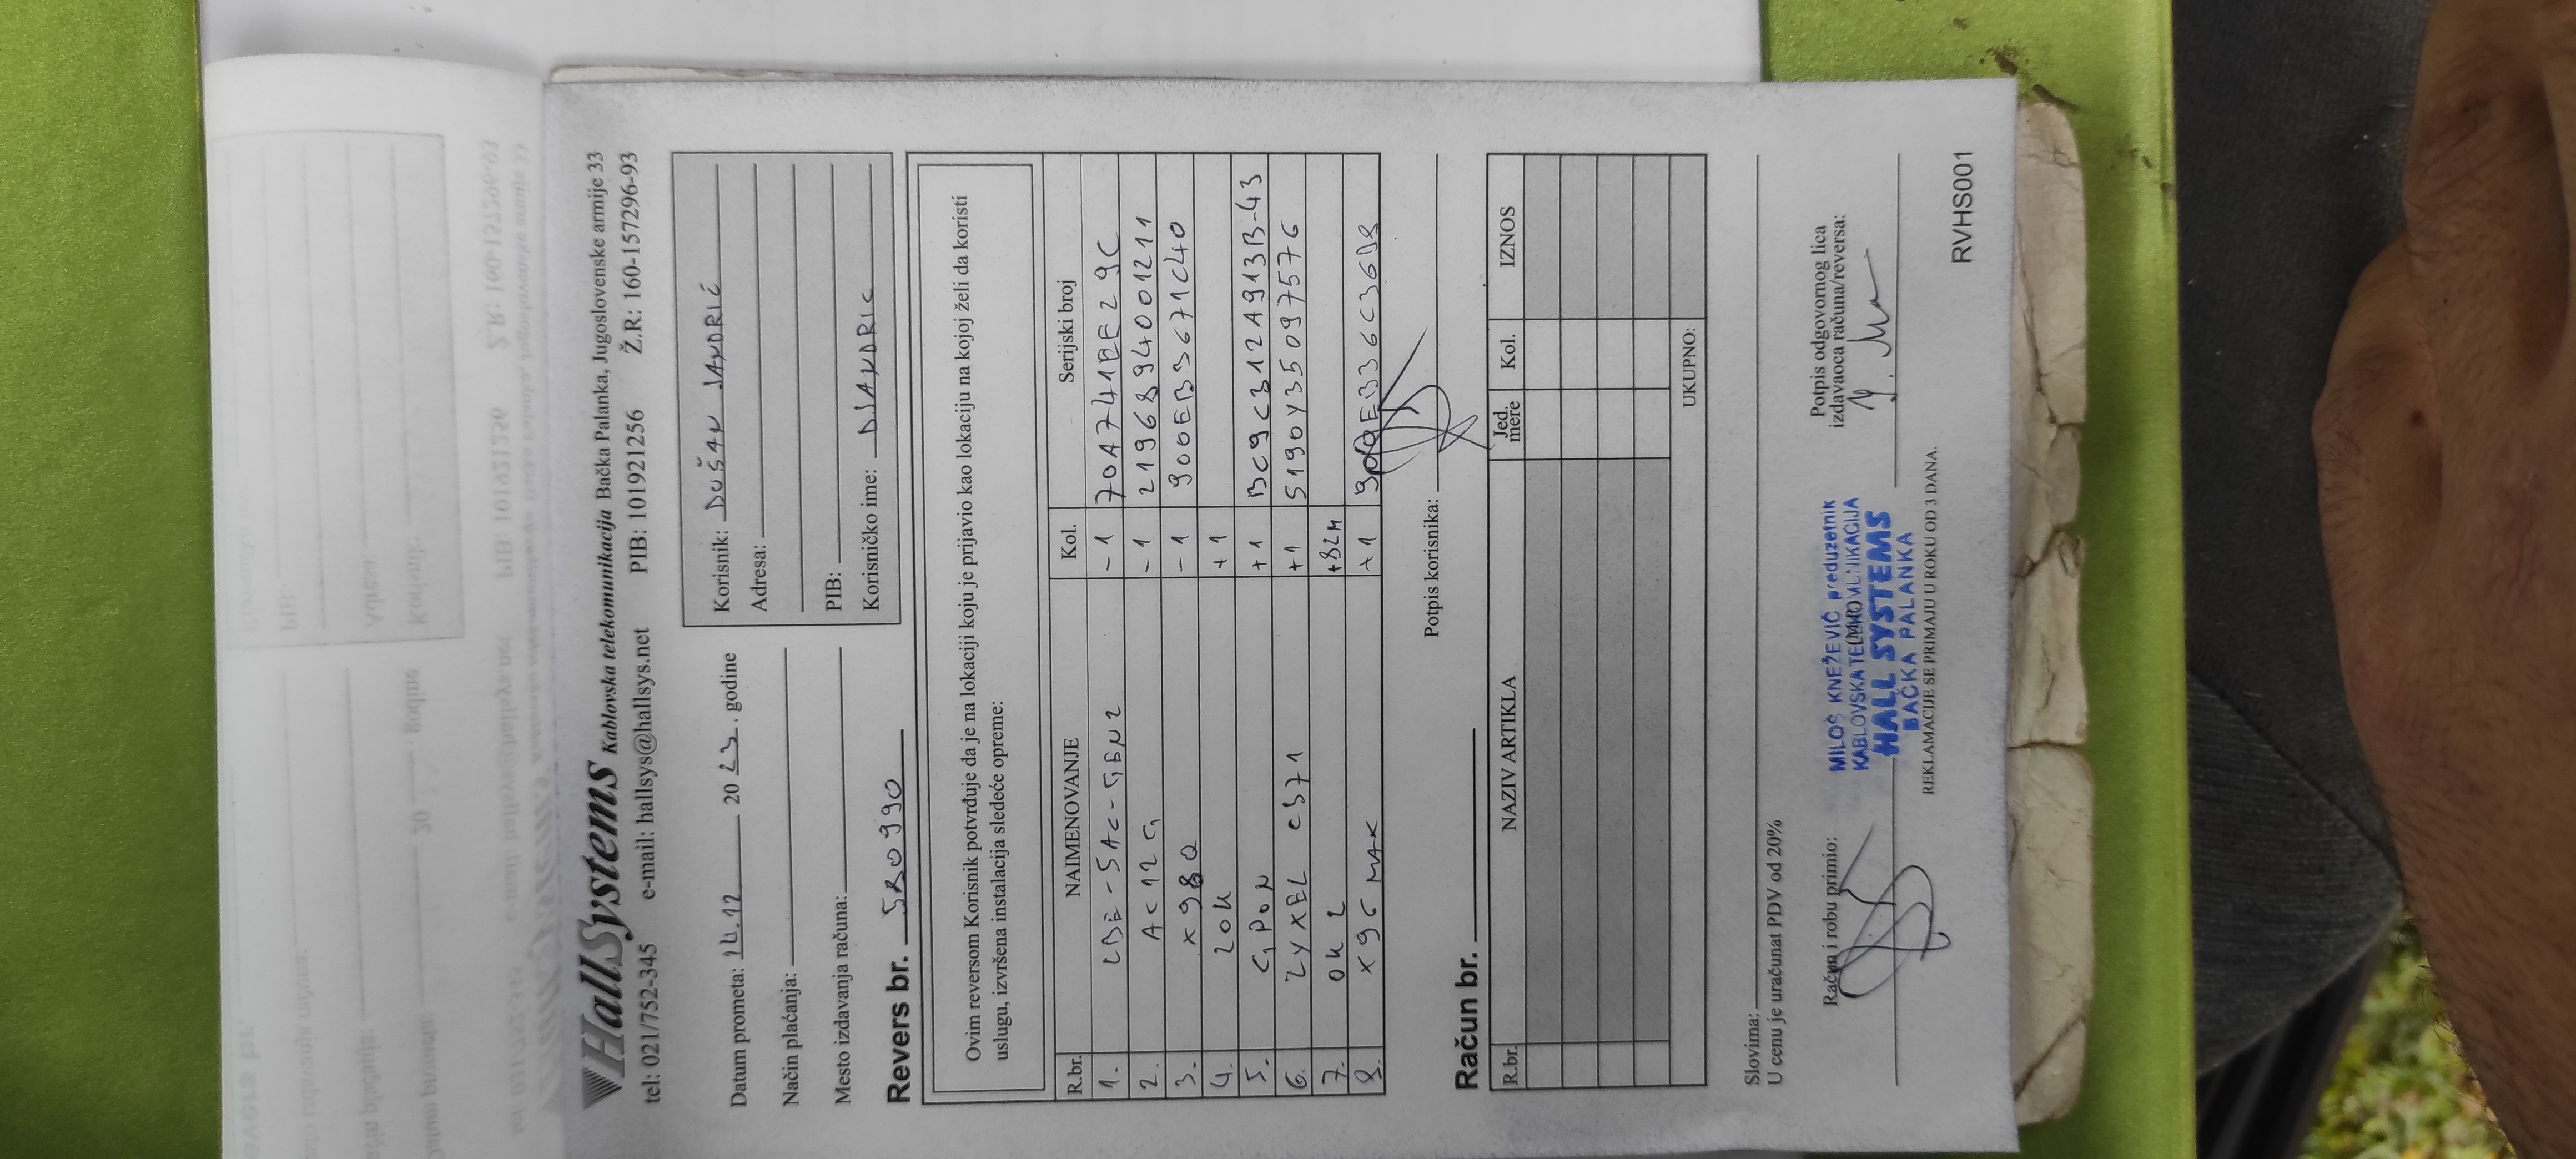 HallSystems Kablovska telekomunikacija Bačka Palanka, Jugoslovenske armije 33
tel: 021/752-345 e-mail: hallsys@hallsys.net PIB: 101921256 Ž.R: 160-157296-93
Datum prometa: 14.12 2023. godine
Način plaćanja:
Mesto izdavanja računa:
Korisnik: DUŠAN JANDRIĆ
Adresa:
PIB:
Korisničko ime: DJANDRIC
Revers br. 580990
Ovim reversom Korisnik potvrđuje da je na lokaciji koju je prijavio kao lokaciju na kojoj želi da koristi
uslugu, izvršena instalacija sledeće opreme:
R.br. NAIMENOVANJE Kol. Serijski broj
1. LBE-5AC-GEN2 -1 70A741EE29C
2. AC12G -1 2196894001211
3. X98Q -1 900EB3671C40
4. 20U +1
5. GPON +1 BC9C312A913B-43
6. ZYXEL +1 S190Y35097576
7. +32M
8. X96 MAX +1
Potpis korisnika:
Račun br.
R.br. NAZIV ARTIKLA Jed. mere Kol. IZNOS
UKUPNO:
Slovima:
U cenu je uračunat PDV od 20%
Račun i robu primio:
Potpis odgovornog lica
izdavaoca računa/reversa:
MILOŠ KNEŽEVIĆ preduzetnik
KABLOVSKA TELEKOMUNIKACIJA
HALL SYSTEMS
BAČKA PALANKA
REKLAMACIJE SE PRIMAJU U ROKU OD 3 DANA.
RVHS001